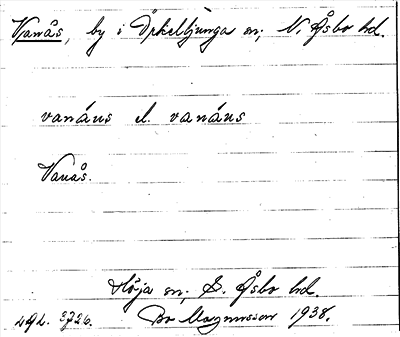 Vanås, by i Örkelljunga sn; N. Åsbo hd.
vanáus el. vanáus
Vanås.
Höja sn; S. Åsbo hd.
Bo Magnusson 1938.